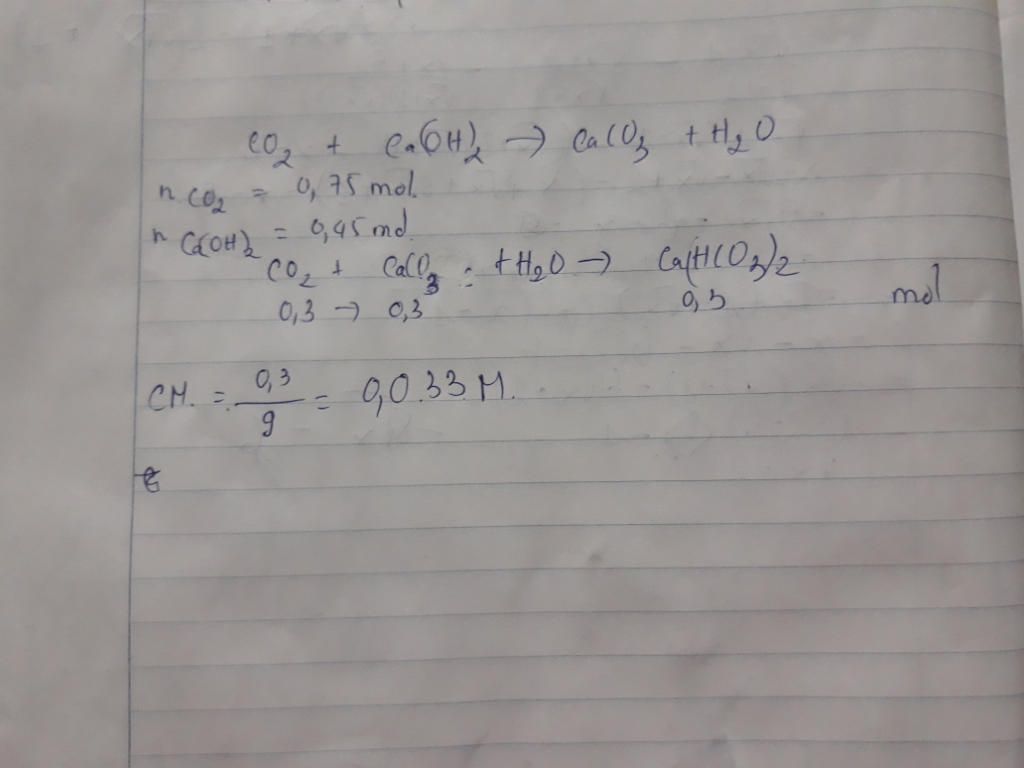 CO2 + Ca(OH)2 → CaCO3 + H2O
nCO2 = 0,75 mol.
nCa(OH)2 = 0,45 mol.
CO2 + CaCO3 + H2O → Ca(HCO3)2
0,3 → 0,3 0,3 mol
CM. = 0,3/9 = 0,033 M.